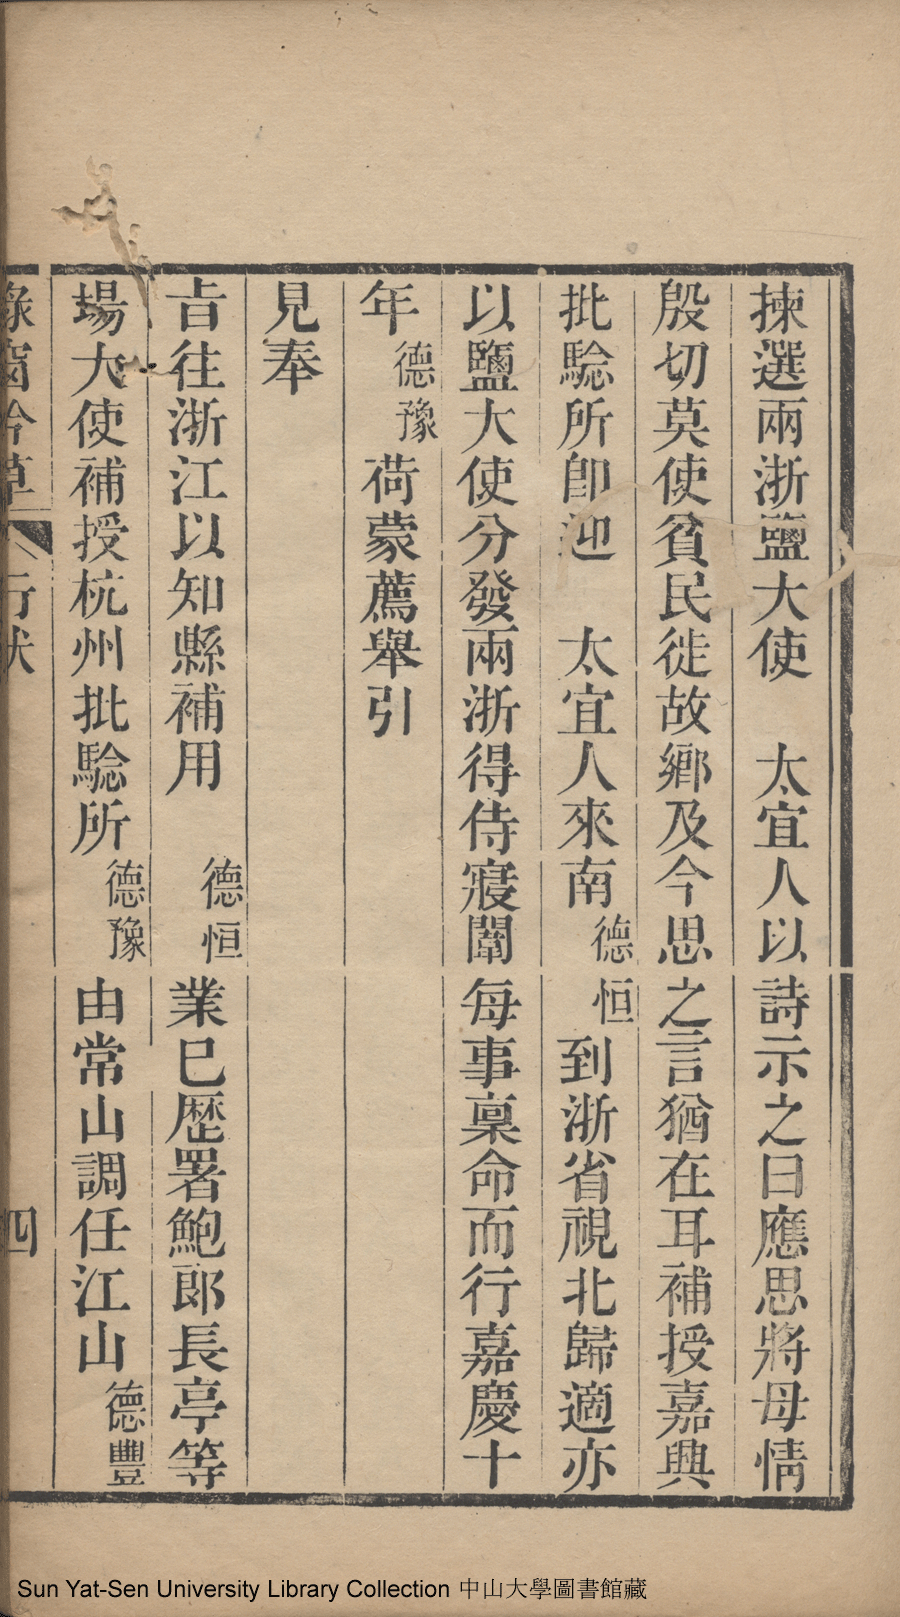 揀選兩浙鹽大使　太宜人以詩示之曰應思將母情
殷切莫使貧民徙故鄉及今思之言猶在耳補授嘉興
批騐所卽迎　太宜人來南德恒到浙省視北歸適亦
以鹽大使分發兩浙得侍寢闈每事稟命而行嘉慶十
年德豫荷蒙薦舉引
見奉
旨往浙江以知縣補用　德恒業巳歷署鮑郎長亭等
場大使補授杭州批騐所德豫由常山調任江山德豐
吟草　行狀　四
Sun Yat-Sen University Library Collection 中山大學圖書館藏